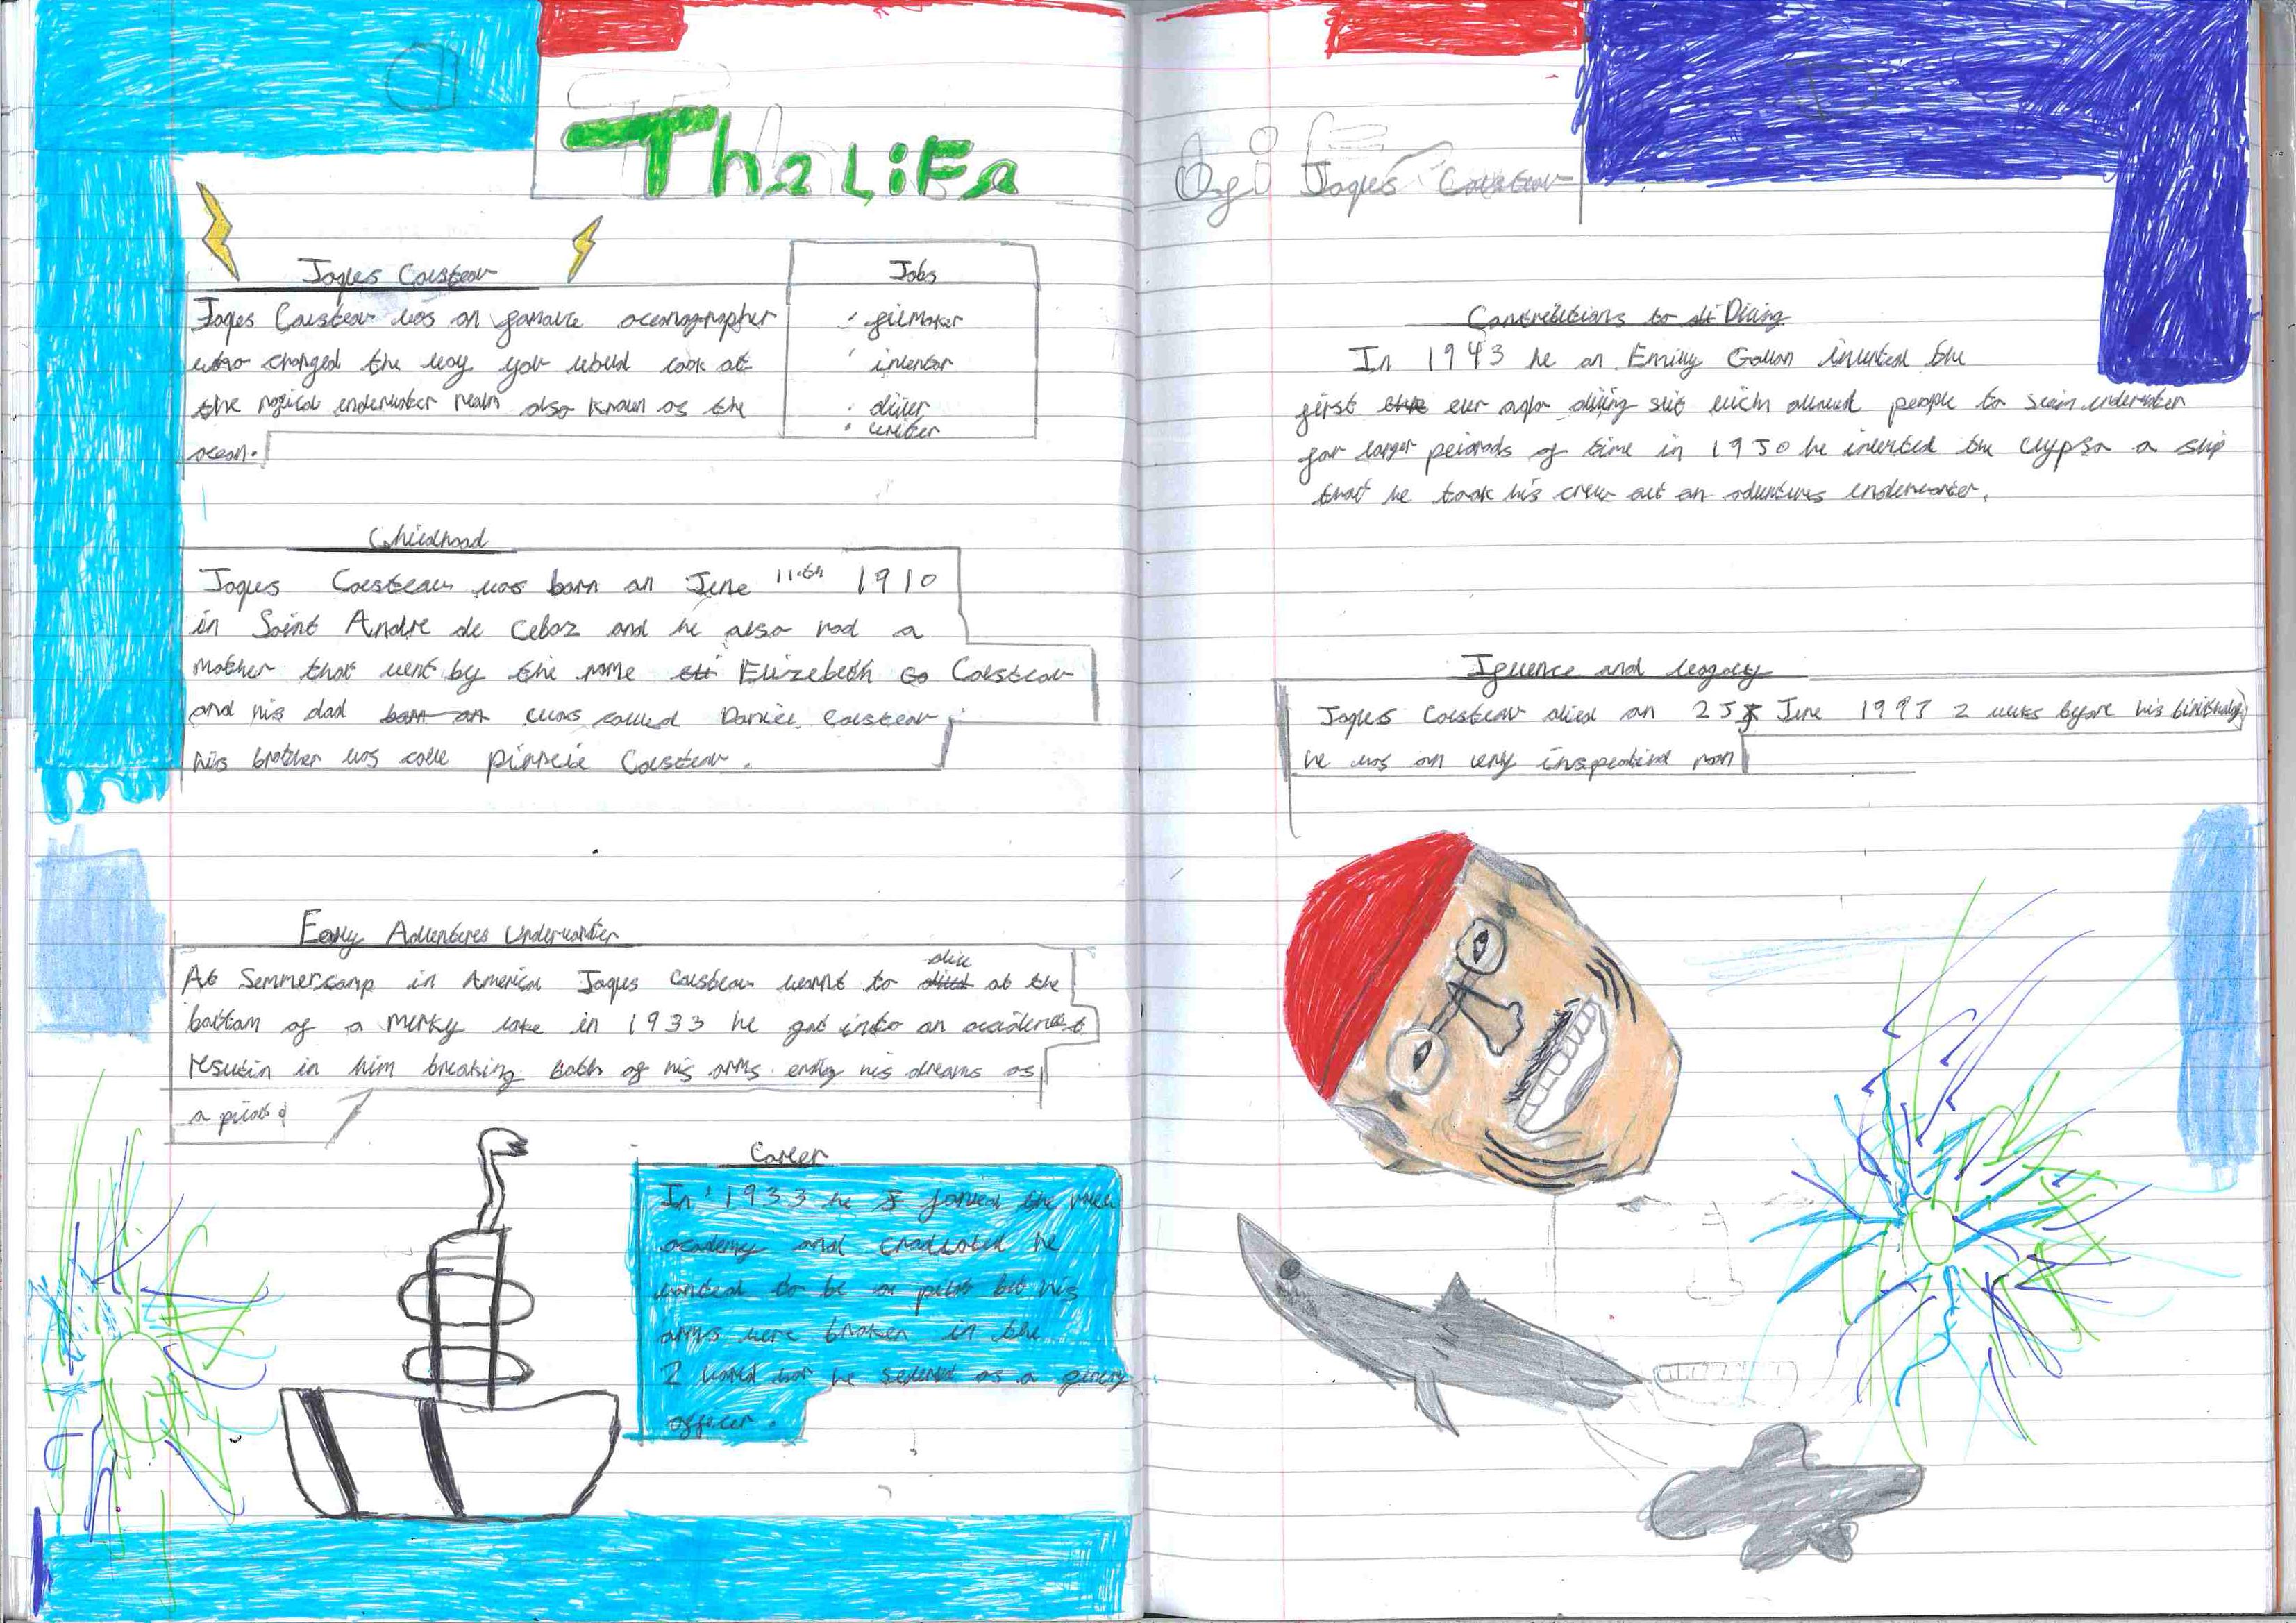 The LiFe
of Jaques Cousteau
Jaques Cousteau
Jaques Cousteau was an famouse oceanographer
who changed the way you would look at
the magical underwater realm also known as the
ocean.
Jobs
filmaker
inventor
diver
writer
Childhood
Jaques Cousteau was born on June 11th 1910
in Saint Andre de Cebaz and he also had a
mother that went by the name Elizebeth Cousteau
and his dad born on was called Daniel Cousteau
his brother was calle pirreie Cousteau.
Early Adventures Underwater
At Summercamp in America Jaques Cousteau learnt to dive at the
bottom of a murky lake in 1933 he got into an accident
resultin in him breaking both of his arms endig his dreams as
a pilot.
Career
In 1933 he joined the
academy and graduated he
wanted to be a pilot but his
arms were broken in the
2 world war he served as a
officer.
Contributions to Diving
In 1943 he an Emilly Gallan invented the
first ever aqla diving suit wich allowed people to swim underwater
for longer peiorods of time in 1950 he invented the Clypsa a ship
that he took his crew out on adventures underwater.
Ifluence and legacy
Jaques Cousteau died on 25 June 1997 2 weeks before his birthday
he was an very man